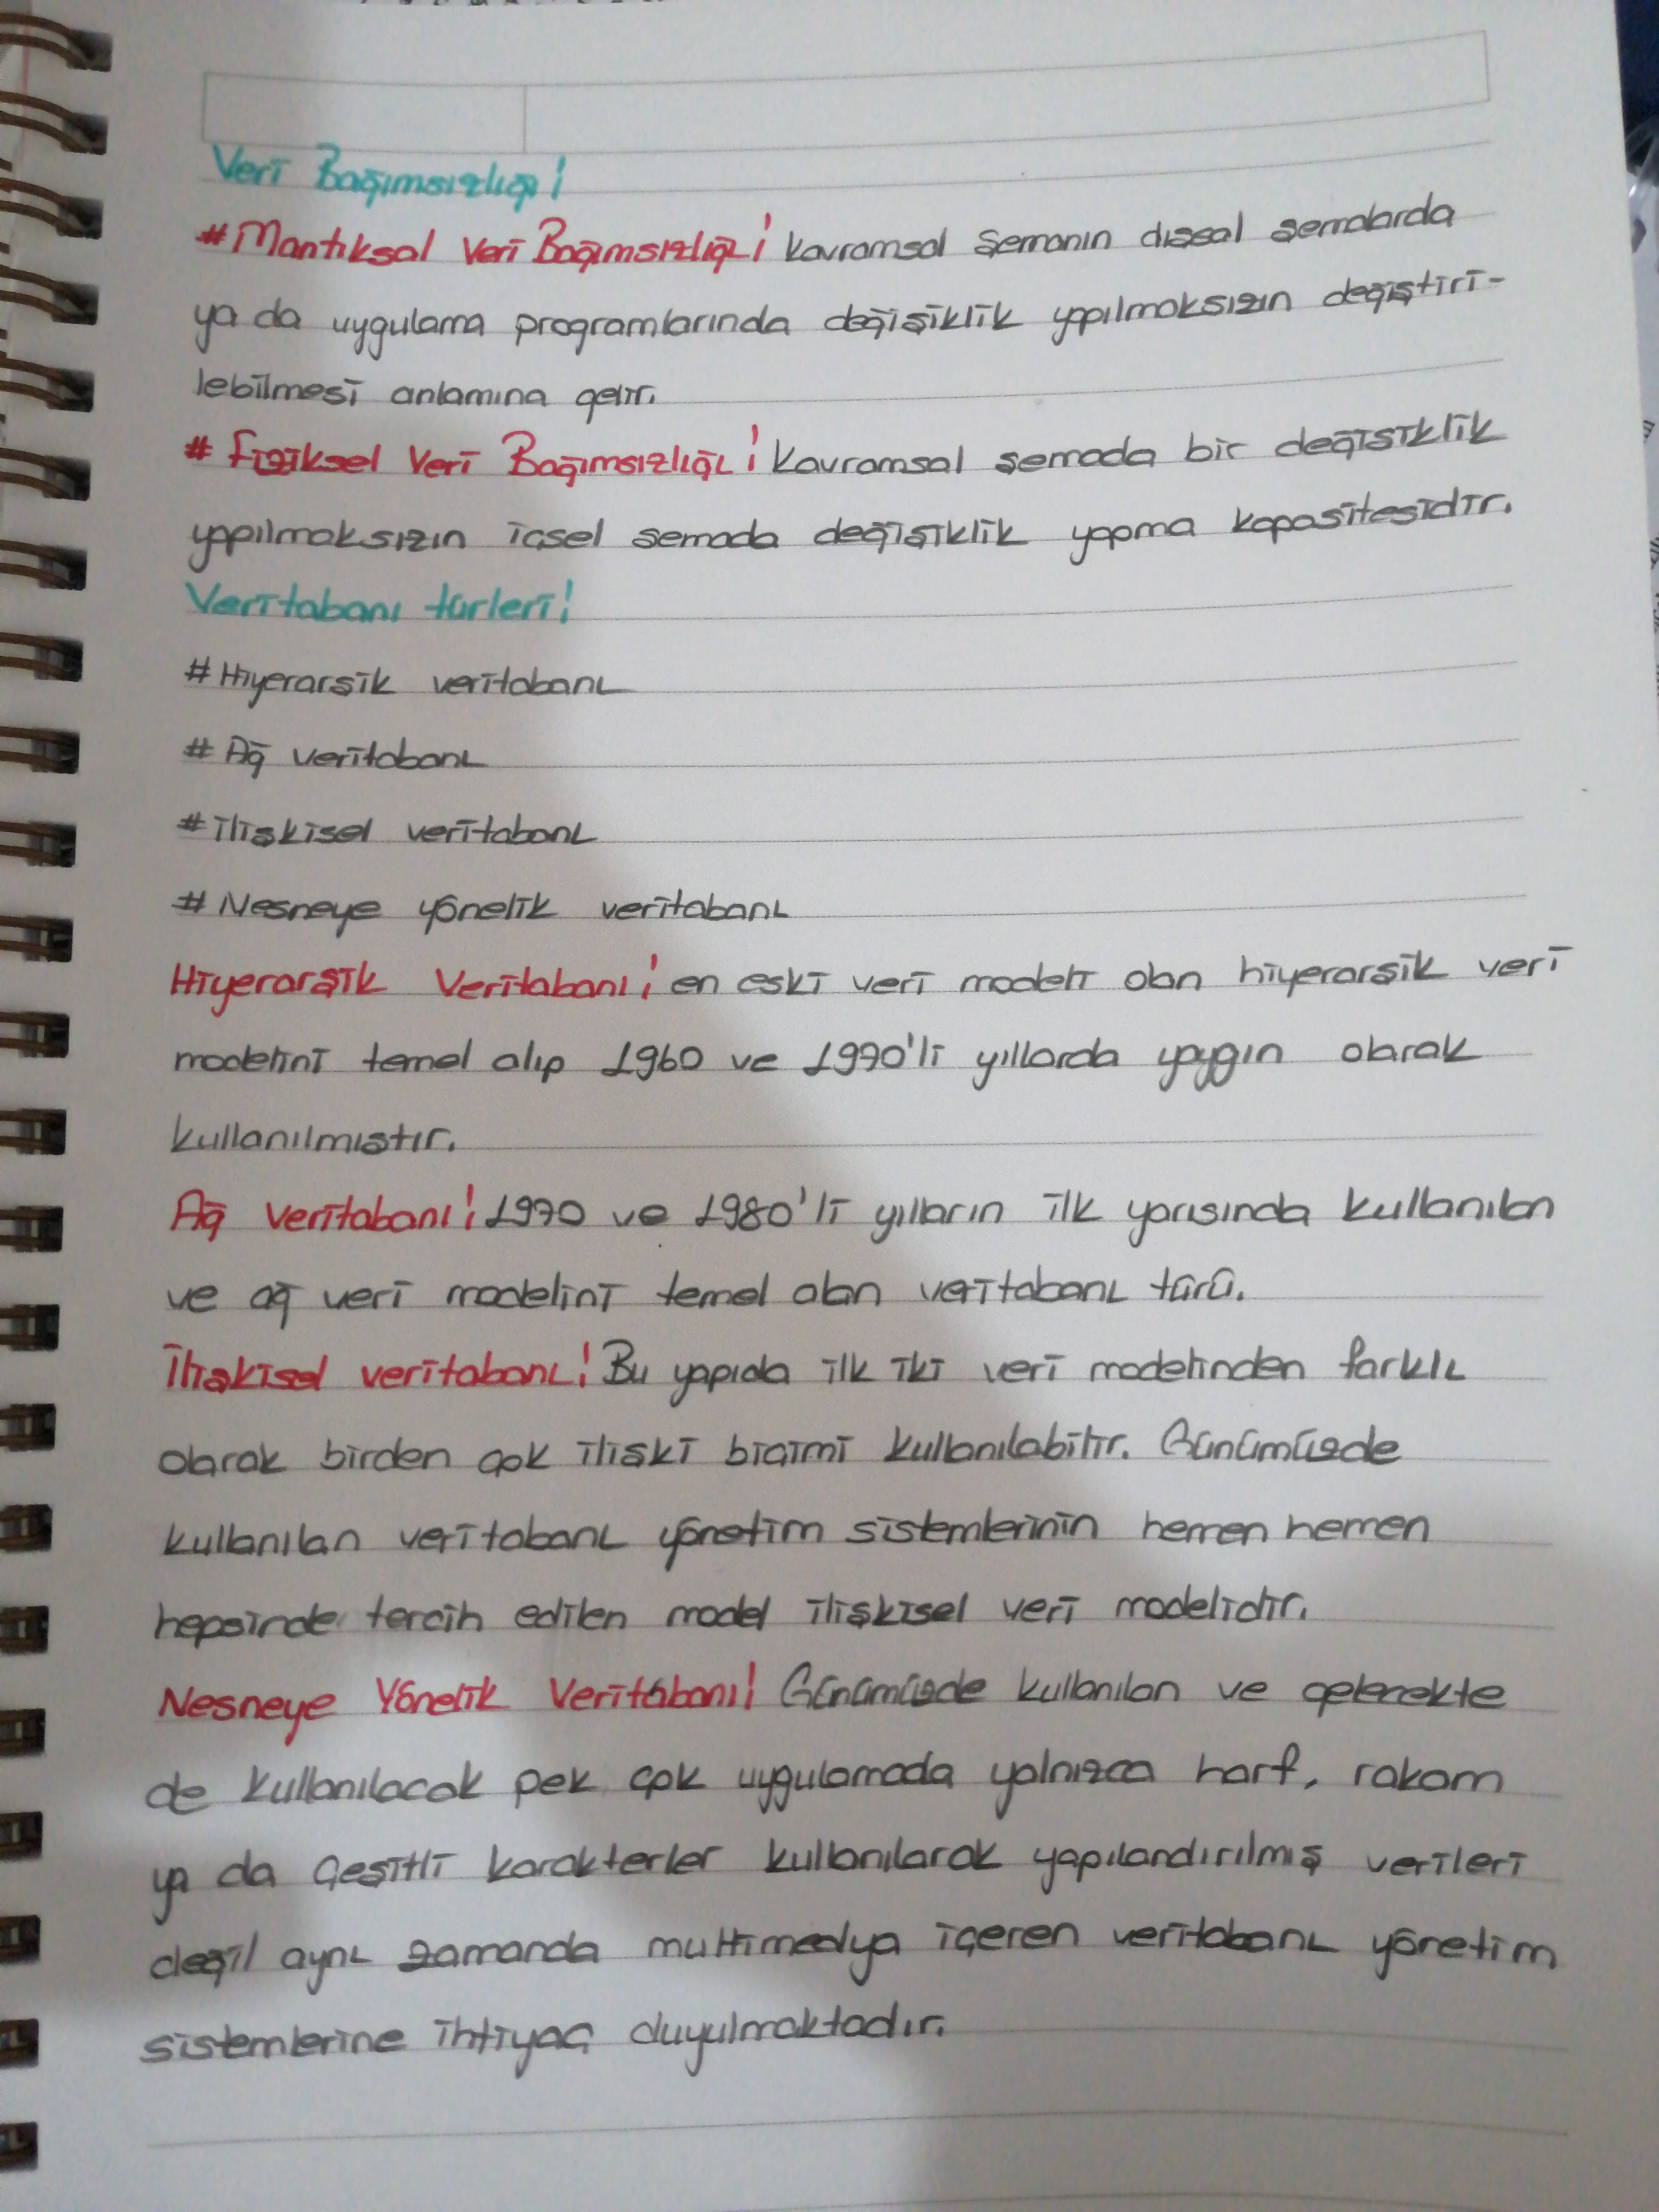 Veri Bağımsızlığı!
#Mantıksal Veri Bağımsızlığı! kavramsal şemanın dışsal şemalarda
ya da uygulama programlarında değişiklik yapılmaksızın değiştiri-
lebilmesi anlamına gelir.
# Fiziksel Veri Bağımsızlığı! Kavramsal şemada bir değişiklik
yapılmaksızın içsel şemada değişiklik yapma kapasitesidir.
Veritabanı türleri!
#Hiyerarşik veritabanı
# Ağ veritabanı
#ilişkisel veritabanı
# Nesneye yönelik veritabanı
Hiyerarşik Veritabanı! en eski veri modeli olan hiyerarşik veri
modelini temel alıp 1960 ve 1970'li yıllarda yaygın olarak
kullanılmıştır.
Ağ veritabanı! 1970 ve 1980'li yılların ilk yarısında kullanılan
ve ağ veri modelini temel alan veritabanı türü.
İlişkisel veritabanı! Bu yapıda ilk iki veri modelinden farklı
olarak birden çok ilişki biçimi kullanılabilir. Günümüzde
kullanılan veritabanı yönetim sistemlerinin hemen hemen
hepsinde tercih edilen model ilişkisel veri modelidir.
Nesneye Yönelik Veritabanı! Günümüzde kullanılan ve gelecekte
de kullanılacak pek çok uygulamada yalnızca harf, rakam
ya da çeşitli karakterler kullanılarak yapılandırılmış verileri
değil aynı zamanda multimedya içeren veritabanı yönetim
sistemlerine ihtiyaç duyulmaktadır.